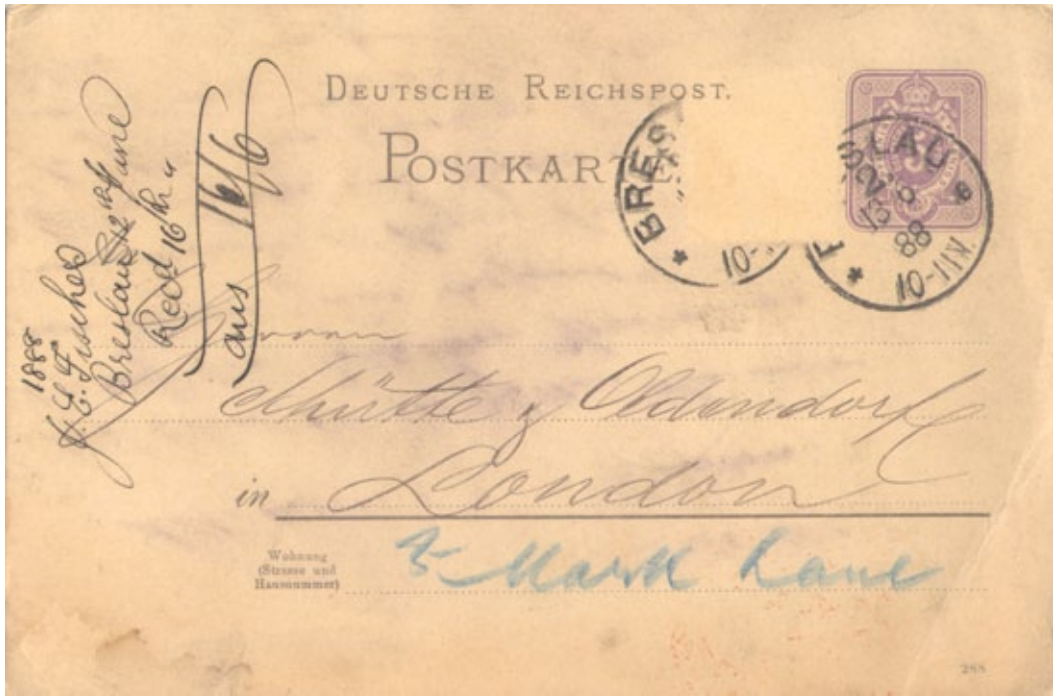 DEUTSCHE REICHSPOST.
POSTKARTE.
BRES
10-
LAU
88
10-11V.
1888
Breslau 12th June
Recd 16th "
ans 16/6
Herren
& Oldendorff
in London
Wohnung
(Strasse und
Hausnummer)
Mark Lane
288